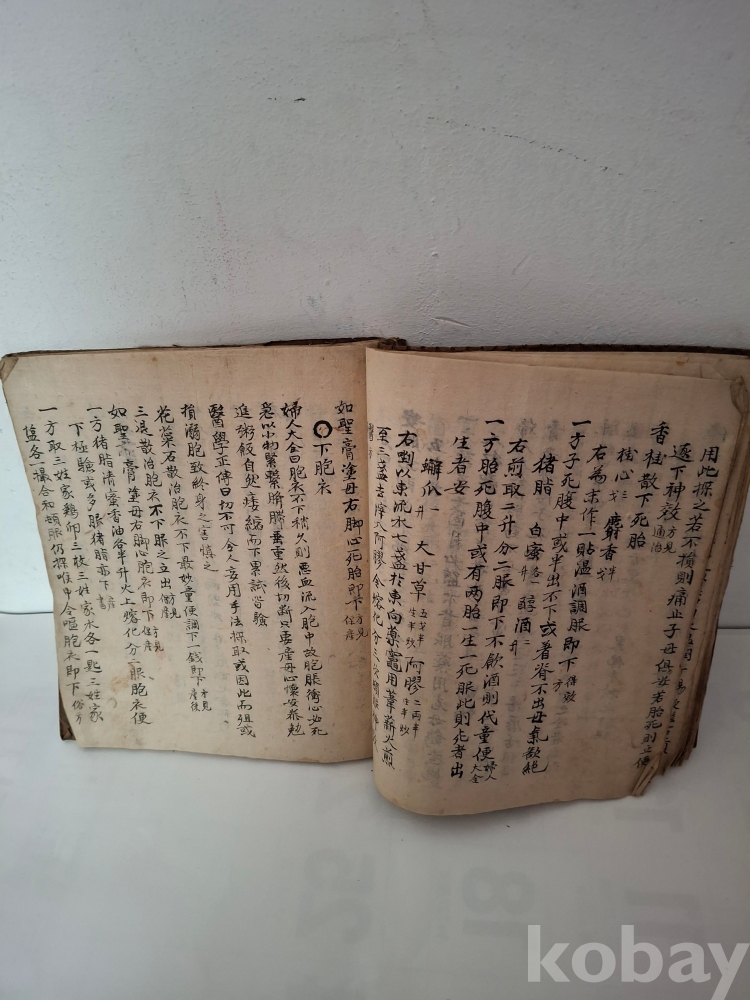 用此探之若不損則痛止子母俱安若胎死則止傳
逐下神效方見通治
香桂散下死胎
桂心 麝香
右爲末作一貼溫酒調服即下
一方子死腹中或半出不下或著脊不出母氣欲絶
猪脂 白蜜各一升 醇酒二升
右煎取二升分二服即下不飮酒則代童便婦人大全
一方胎死腹中或有兩胎一生一死服此則死者出
生者安
蠏爪一升 大甘草 阿膠
右剉以東流水七盞於東向藥竈用葦薪火煎
至三盞去滓入阿膠令熔化分三
如聖膏塗母右脚心死胎即下方見催產
下胞衣
婦人大全曰胞衣不下稍久則惡血流入胞中故胞脹衝心必死
急以小物緊繫臍帶垂重然後切斷只要產母心懷安泰勉
進粥飯自然痿縮而下累試皆驗
醫學正傳曰切不可令人妄用手法採取或因此而殂或
損溺胞致終身之害愼之
花蘂石散治胞衣不下最妙童便調下一錢即下方見產後
三退散治胞衣不下服之立出方見催產
如聖膏塗母右脚心胞衣即下方見催產
一方猪脂淸蜜香油各半升火上熔化分二服胞衣便
下極驗或多服猪脂亦下
一方取三姓家鷄卵三枚三姓家水各一匙三姓家
塩各一撮合和頓服仍探喉中令嘔胞衣即下俗方
kobay